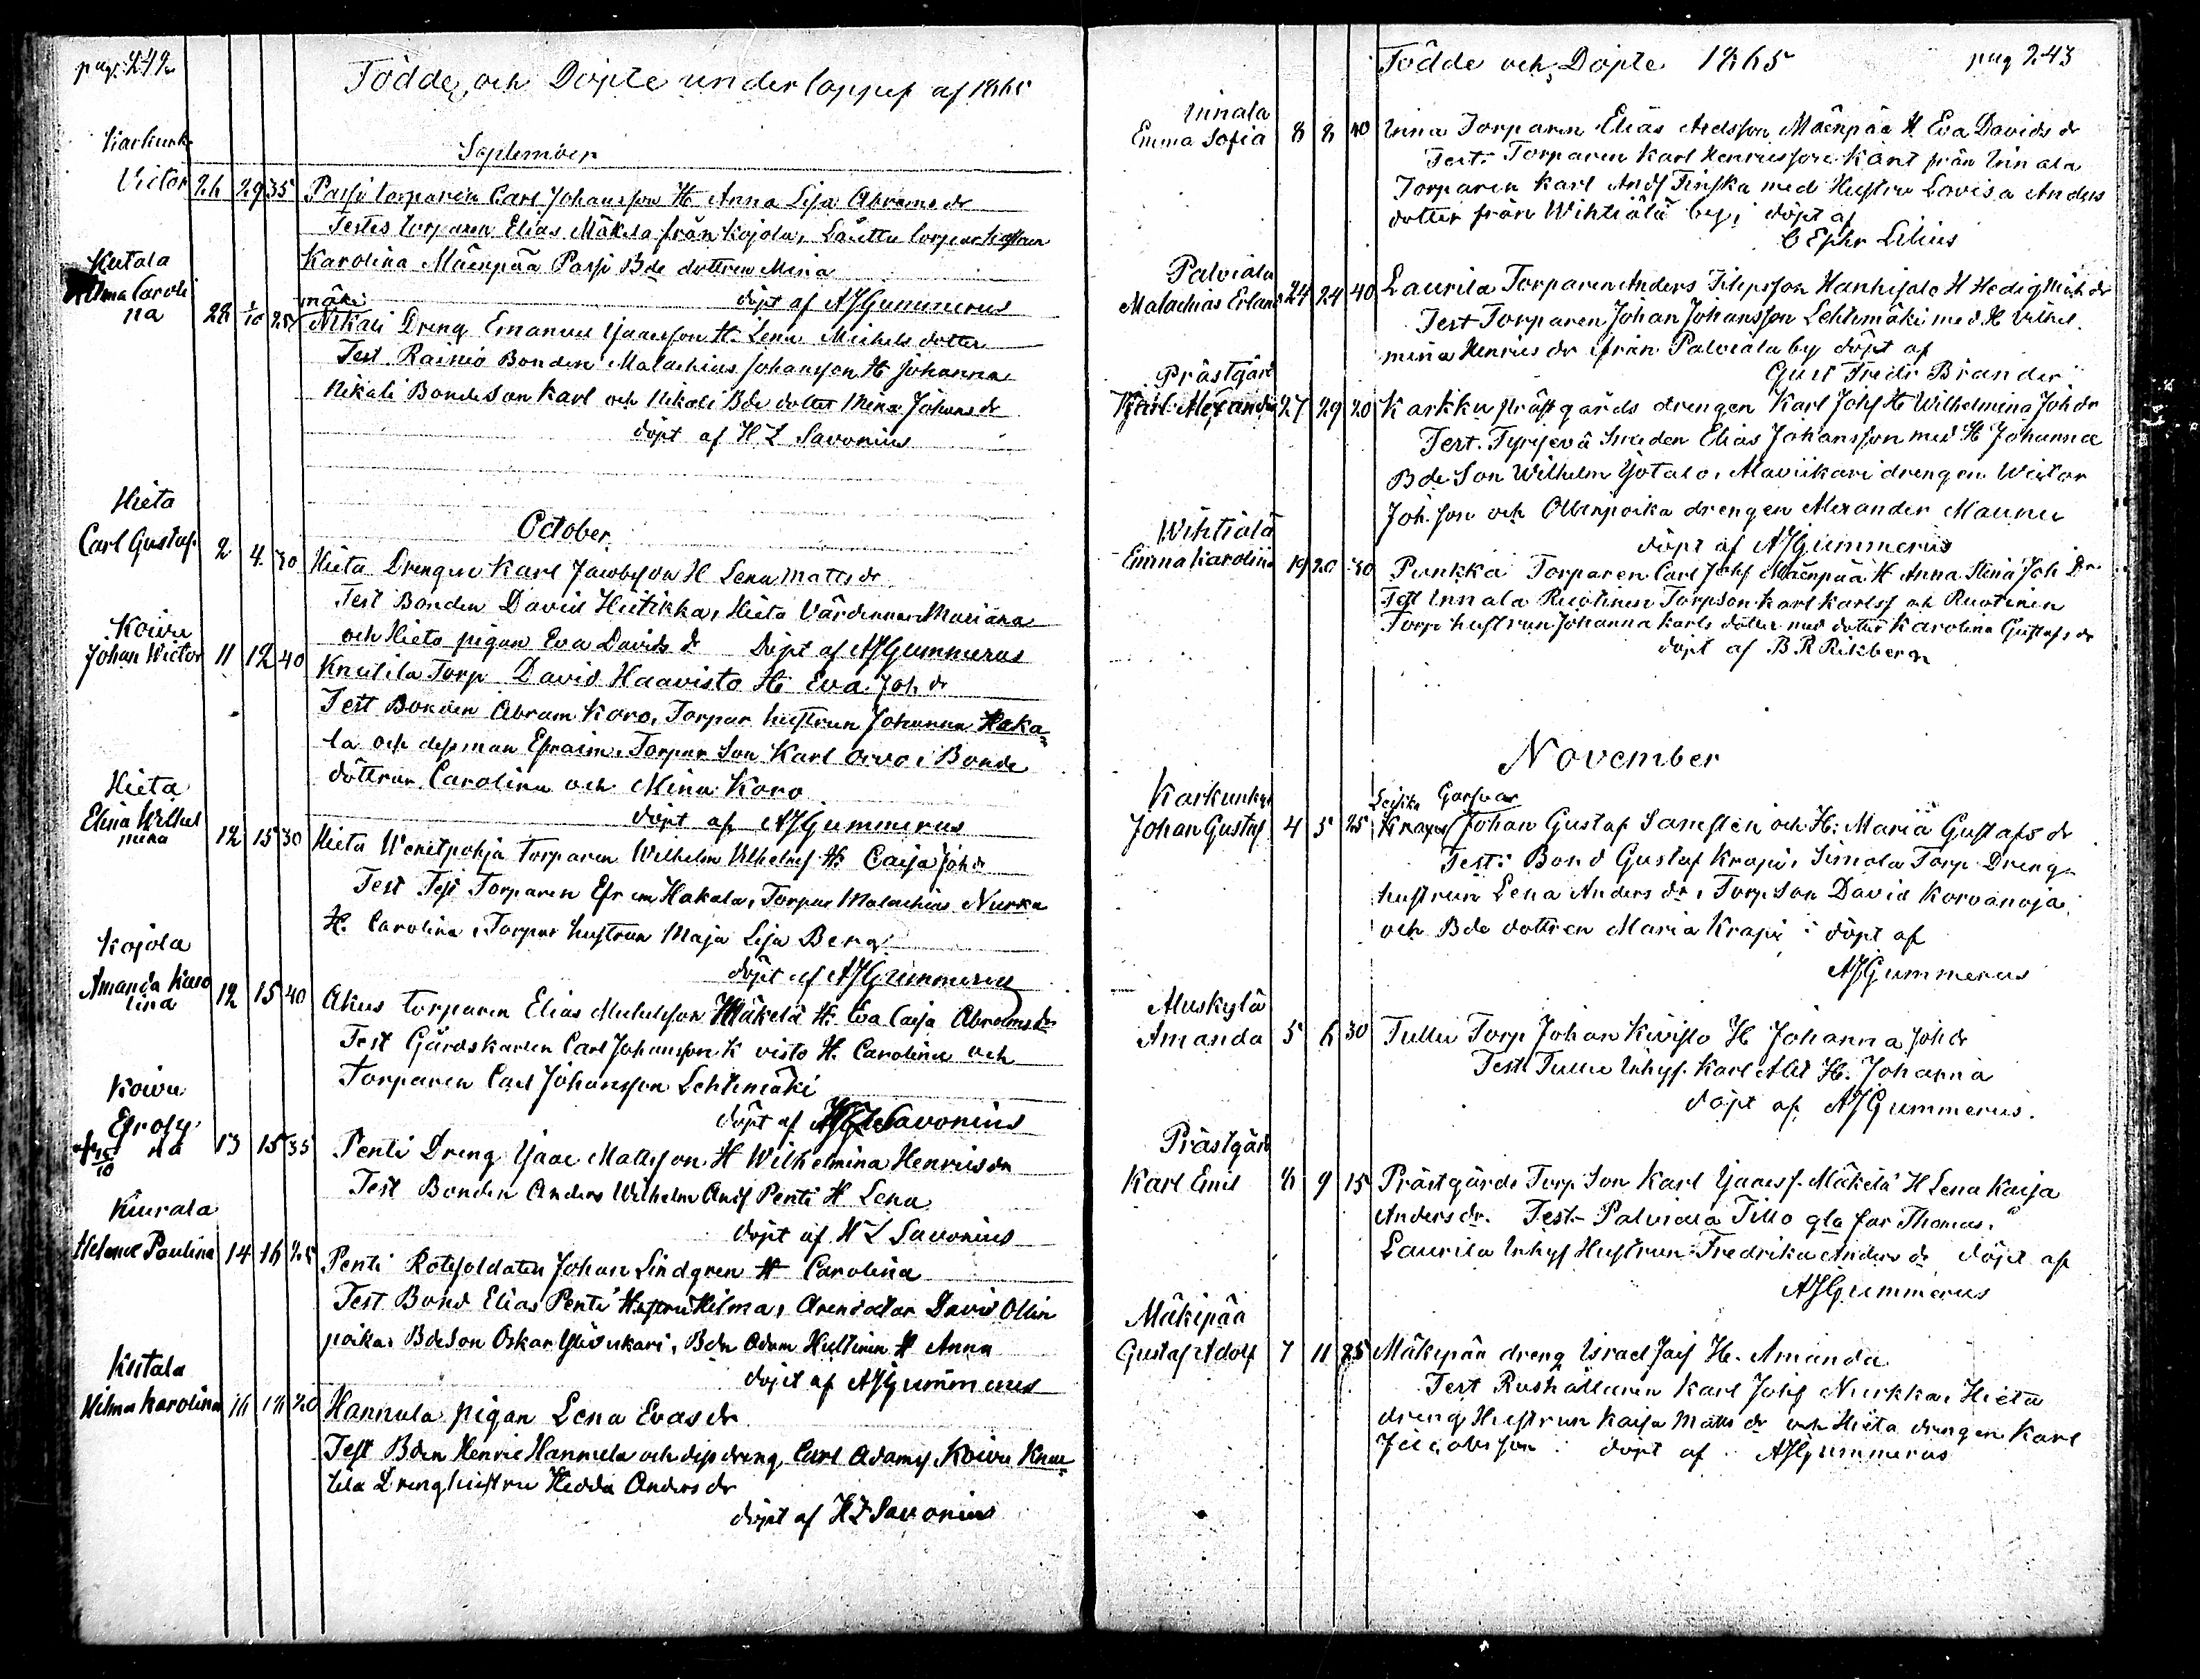 pag. 242
Födde och Döpte under loppet af 1865
Karkunk
September
Victor 26 29 35 Passi torparen Carl Johansson H. Anna Lisa Abrams dr
Testes torparen Elias Mäkelä från Kojola, Lauttu torpar hustrun
Karolina Mäenpää Passi Bde dottren Mina
döpt af AJGummerus
Kutala
Wilma Caroli
na 28 1/10 25 Nikali mäki Dreng Emanuel Isaacsson H. Lena Michels dotter
Test Rainio Bonden Malachias Johansson H Johanna
Nikali Bonde Son Karl och Nikali Bde dotter Mina Johans dr
döpt af H L Savonius
October
Hieta
Carl Gustaf 2 4 30 Hieta Drengen Karl Jacobsson H Lena Matts dr
Test Bonden David Huitikka, Hieta Värdinnan Mariana
och Hieta pigan Eva Davids dr Döpt af AJGummerus
Koivu
Johan Wictor 11 12 40 Knutila Torp David Haavisto H. Eva Joh. dr
Test Bonden Abram Koro, Torpar hustrun Johanna Haka-
la och dess man Efraim, Torpar Son Karl Orvo, Bonde
döttrar Carolina och Mina Koro
döpt af AJGummerus
Hieta
Elina Wilhel
mina 12 15 30 Hieta Wenetpohja torparen Wilhelm Wilhelmss H. Caisa Joh dr
Test Test Torparen Efraim Hakala, Torpar Malachias Nurka
H. Carolina, Torpar hustrun Maja Lisa Berg
döpt af AJGummerus
Kojola
Amanda Karo
lina 12 15 40 Akus torparen Elias Michelsson Mäkelä H. Eva Caisa Abrams dr
Test Gårdskarlen Carl Johansson Kivisto H. Carolina och
Torparen Carl Johansson Lehtimäki
döpt af H L Savonius
Koivu
Efrosy
na 13 15 35 Penti Dreng Isaac Mattsson H Wilhelmina Henriks dr
+ 15/10
Test Bonden Anders Wilhelm Ands Penti H Lena
döpt af H L Savonius
Kiurala
Helena Paulina 14 16 25 Penti Rotesoldaten Johan Lindgren H Carolina
Test Bond Elias Penti Hustru Hilma, Arendator David Ollin
poika, Bde Son Oskar Ylisukari, Bdn Adam Hultinen H Anna
döpt af AJGummerus
Kutala
Wilma Karolina 16 18 20 Hannula pigan Lena Evas dr
Test Bden Henric Hannula och dess dreng Carl Adams Koivu Knu-
tila Dreng hustru Hedda Anders dr
döpt af H L Savonius
Födde och Döpte 1865 pag 243
Innala
Emma Sofia 8 8 40 Inna Torparen Elias Andsson Mäenpää H Eva Davids dr
Test. Torparen Karl Henricsson Känt från Innala
Torparen Karl Ands Finska med Hustru Lovisa Anders
dotter från Wihtiälä by; döpt af
C Ephr Lilius
Palviala
Malachias Erland 24 24 40 Laurila Torparen Anders Filipsson Hanhisalo H Hedig Mich dr
Test Torparen Johan Johansson Lehtimäki med H Vilhel
mina Henrics dr från Palviala by döpt af
Gust Fredr Brander
Prästgård
Karl Alexander 27 29 20 Karkku prästgårds drengen Karl Johs H. Wilhelmina Joh dr
Test. Tyrisevä Smeden Elias Johansson med H Johanna
Bde Son Wilhelm Isotalo, Maviikari drengen Victor
Joh. son och Ollinpoika drengen Alexander Maunu
döpt af AJGummerus
Wihtiälä
Emma Karolina 19 20 30 Punkka Torparen Carl Johs Mäenpää H Anna Stina Joh Dr
Test Innala Ruotinen Torp Son Karl Karlss och Ruotinen
Torp hustrun Johanna Karls dotter med dotter Karolina Gustafs dr
döpt af B R Rikberg
November
Karkunkyl
Johan Gustaf 4 5 25 Krapi Garfvar Johan Gustaf Samsten och H: Maria Gustafs dr
Test: Bond Gustaf Krapi, Simola Torp Dreng
hustrun Lena Anders dr, Torp Son David Korvanoja
och Bde dottren Maria Krapi: döpt af
AJGummerus
Muskylä
Amanda 5 6 30 Tullu Torp Johan Kivisto H Johanna Joh dr
Test Tullu Inhys. Karl Abt H. Johanna
döpt af AJGummerus.
Prästgård
Karl Emil 8 9 15 Prästgårds Torp Son Karl Isaacs. Mäkelä H Lena Kaisa
Anders dr. Test. Palviala Tillo gla far Thomas,
Laurila Inhys Hustrun Fredrika Anders dr döpt af
AJGummerus
Mäkipää
Gustaf Adolf 7 11 25 Mäkipää dreng Israel Jais H. Amanda
Test Rushållaren Karl Johs Nurkka, Hieta
dreng Hustrun Kaisa Matts dr och Hieta drengen Karl
Jacobsson döpt af AJGummerus